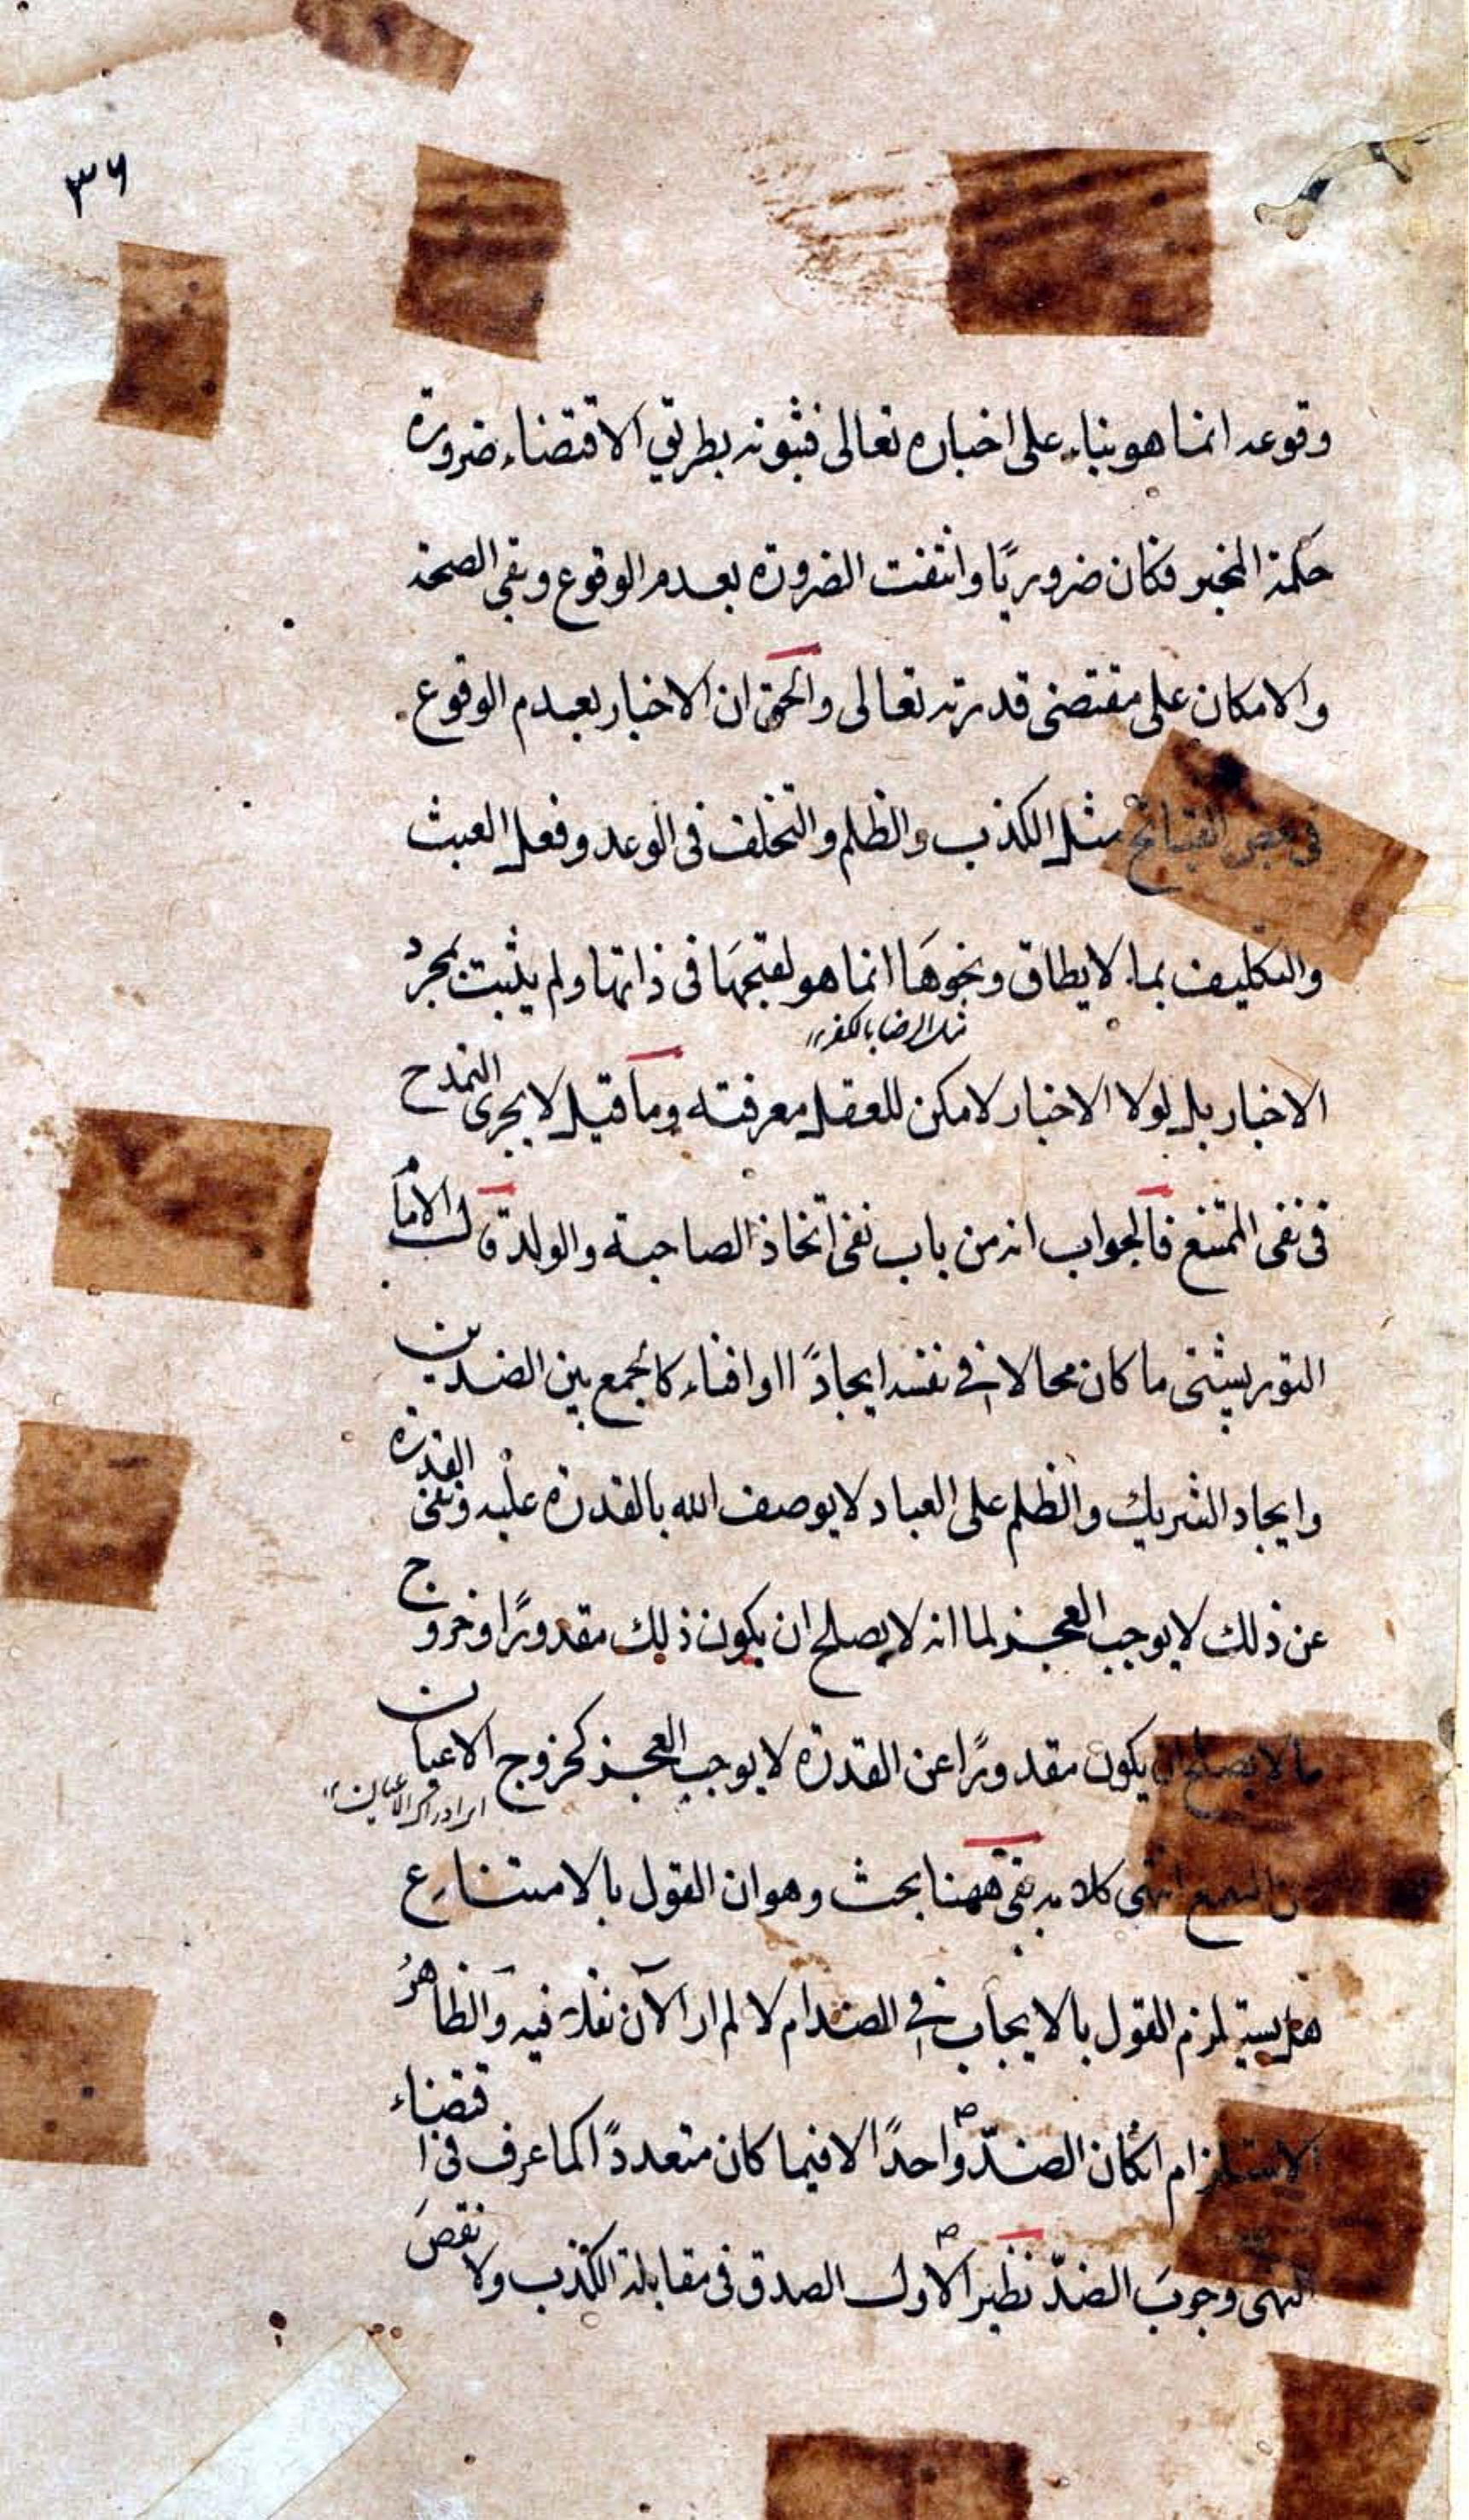 ٣٦
وقوعه انما هو بناء على اخباره تعالى فثبوته بطريق الاقتضاء ضرورة
حكمة المخبر فكان ضروريًا وانتفت الضرورة بعدم الوقوع وبقى الصحة
والامكان على مقتضى قدرته تعالى والحق ان الاخبار بعدم الوقوع
فى بعض القبائح مثل الكذب والظلم والتخلف فى الوعد وفعل العبث
والتكليف بما لا يطاق ونحوها انما هو لقبحها فى ذاتها ولم يثبت بمجرد
مثل الرضا بالكفر
الاخبار بل لولا الاخبار لامكن للعقل معرفته وما قيل لا يجرى التمدح
فى نفى الممتنع فالجواب انه من باب نفى اتخاذ الصاحبة والولد قال الامام
التوربشتى ما كان محالا فى نفسه ايجادًا او افناء كالجمع بين الضدين
وايجاد الشريك والظلم على العباد لا يوصف الله بالقدرة عليه ونفى القدرة
عن ذلك لا يوجب العجز لما انه لا يصلح ان يكون ذلك مقدورًا وخروج
ما لا يصلح ان يكون مقدورًا عن القدرة لا يوجب العجز كخروج الاعيان
عن السمع انتهى كلامه بقى ههنا بحث وهو ان القول بالامتناع
هل يستلزم القول بالايجاب فى الضد ام لا لم ار الآن نقلا فيه والظاهر
الاستلزام ان كان الضدّ واحدًا لا فيما كان متعددًا كما عرف فى اقتضاء
النهى وجوبَ الضدّ نظير الاول الصدق فى مقابلة الكذب ولا نقصَ